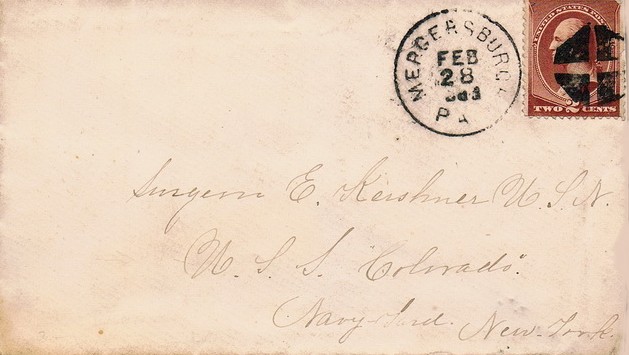 MERCERSBURG
FEB
28
PA
UNITED STATES POSTAGE
TWO 2 CENTS
Surgeon E. Kershner U.S.N.
U. S. S. "Colorado".
Navy Yard. New-York.